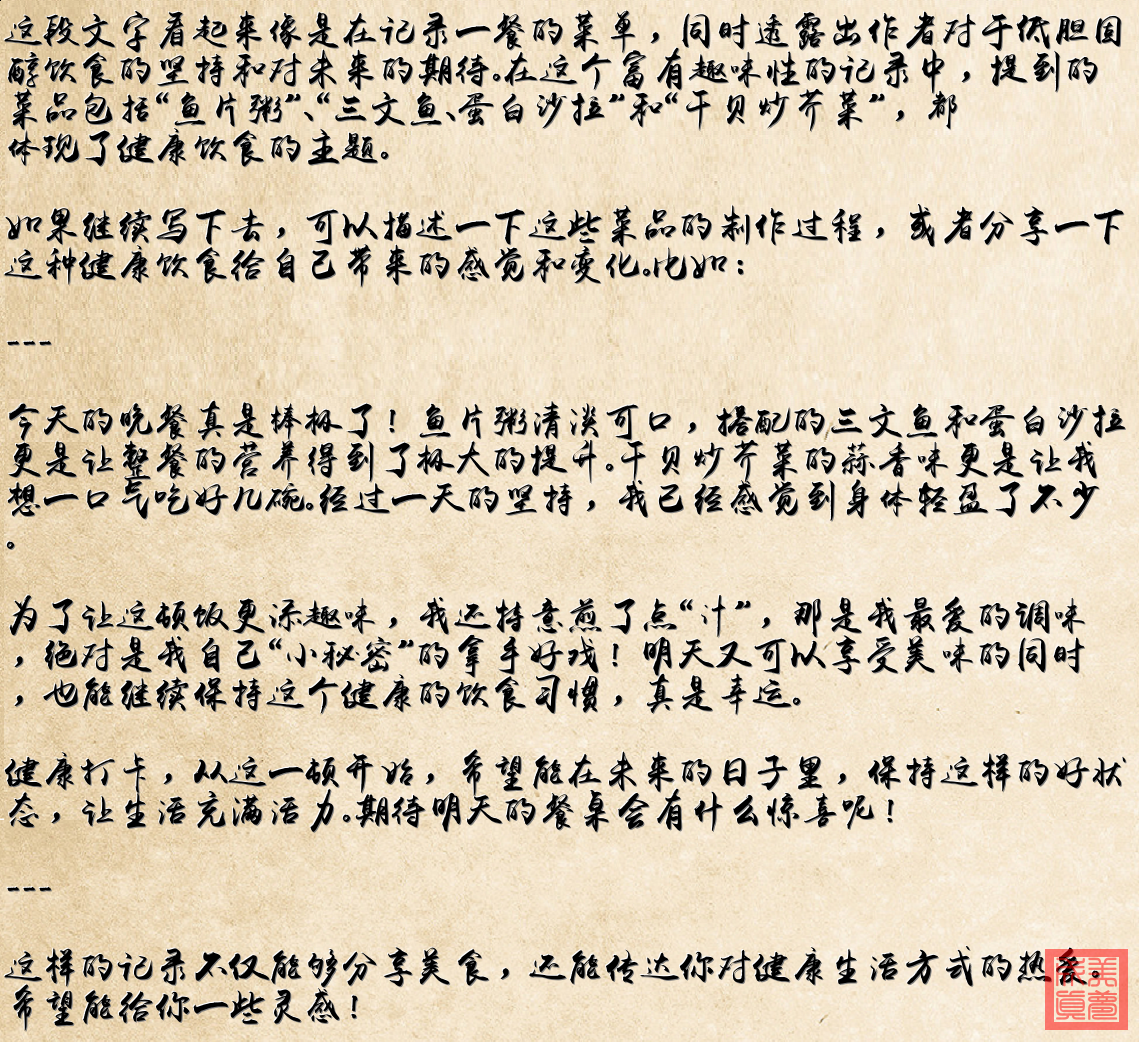 这段文字看起来像是在记录一餐的菜单，同时透露出作者对于低胆固
醇饮食的坚持和对未来的期待。在这个富有趣味性的记录中，提到的
菜品包括“鱼片粥”、“三文鱼、蛋白沙拉”和“干贝炒芥菜”，都
体现了健康饮食的主题。
如果继续写下去，可以描述一下这些菜品的制作过程，或者分享一下
这种健康饮食给自己带来的感觉和变化。比如：
---
今天的晚餐真是棒极了！鱼片粥清淡可口，搭配的三文鱼和蛋白沙拉
更是让整餐的营养得到了极大的提升。干贝炒芥菜的蒜香味更是让我
想一口气吃好几碗。经过一天的坚持，我已经感觉到身体轻盈了不少
。
为了让这顿饭更添趣味，我还特意煎了点“汁”，那是我最爱的调味
，绝对是我自己“小秘密”的拿手好戏！明天又可以享受美味的同时
，也能继续保持这个健康的饮食习惯，真是幸运。
健康打卡，从这一顿开始，希望能在未来的日子里，保持这样的好状
态，让生活充满活力。期待明天的餐桌会有什么惊喜呢！
---
这样的记录不仅能够分享美食，还能传达你对健康生活方式的热爱。
希望能给你一些灵感！